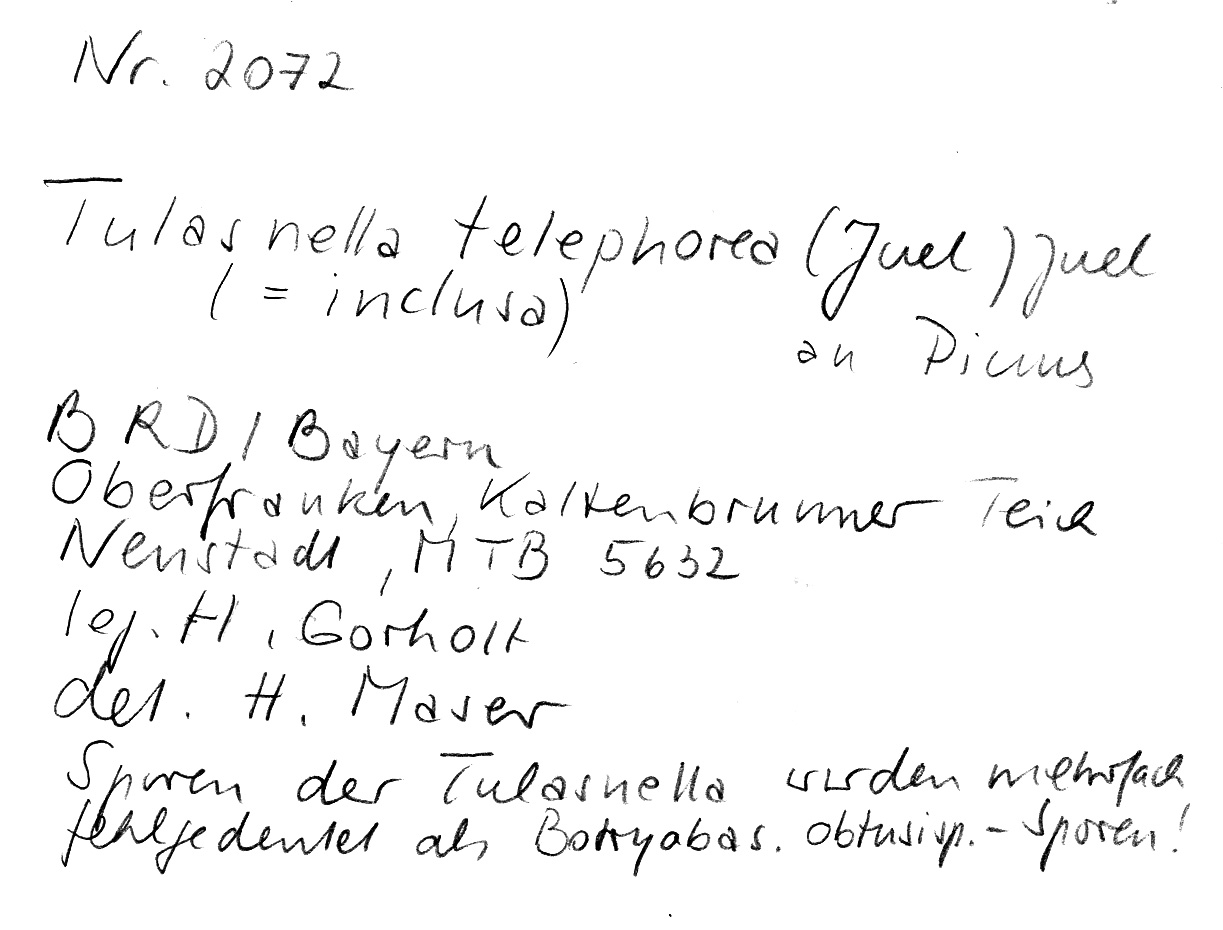 Nr. 2072
Tulasnella telephorea (Juel) Juel
(= inclusa)
an Picnus
BRD / Bayern
Oberfranken, Kaltenbrunner Teich
Neustadt, MTB 5632
leg. H. Gorholt
det. H. Maser
Sporen der Tulasnella wurden mehrfach
fehlgedeutet als Botryobas. obtusisp.- Sporen!